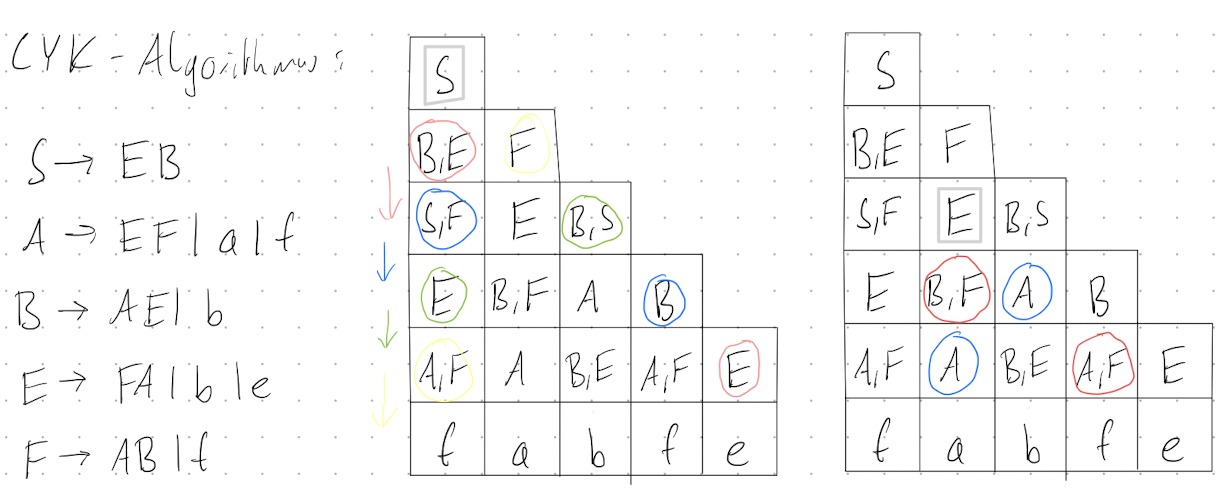 CYK-Algorithmus:
S → EB
A → EF | a | f
B → AE | b
E → FA | b | e
F → AB | f
S
B,E F
S,F E B,S
E B,F A B
A,F A B,E A,F E
f a b f e
S
B,E F
S,F E B,S
E B,F A B
A,F A B,E A,F E
f a b f e